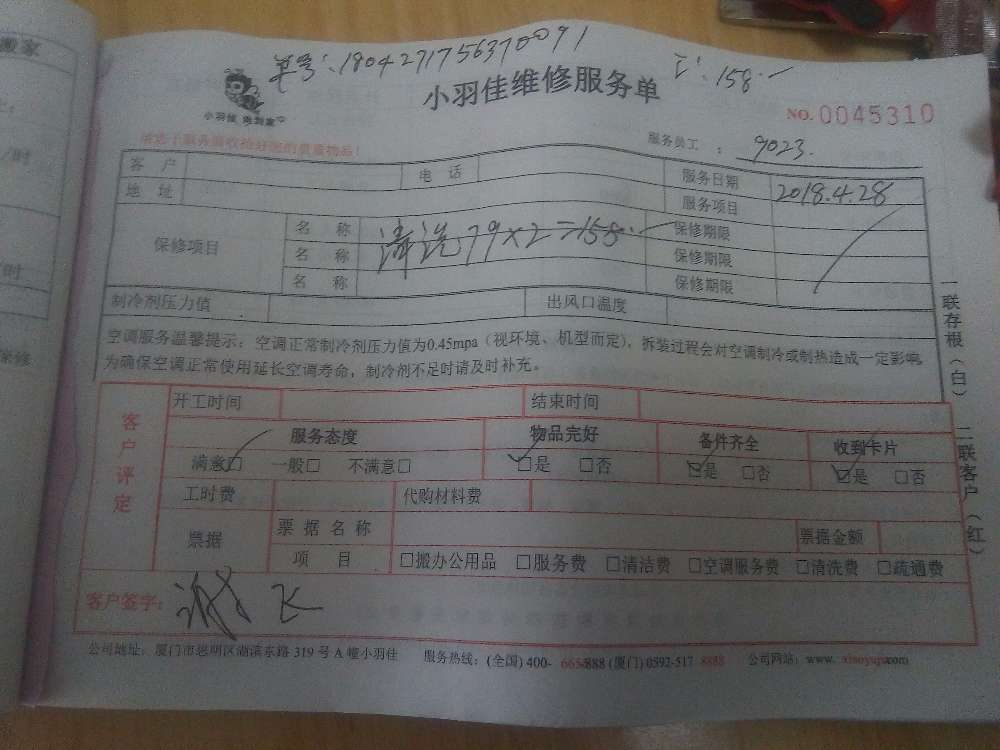 搬家
单号:1804271756370091
工:158.一
小羽佳维修服务单
小羽佳
NO. 0045310
服务员工 : 9023.
客 户
电 话
服务日期
2018.4.28
地 址
服务项目
保修项目
名 称
清洗79×2=158.一
保修期限
名 称
保修期限
名 称
保修期限
制冷剂压力值
出风口温度
空调服务温馨提示:空调正常制冷剂压力值为0.45mpa(视环境、机型而定),拆装过程会对空调制冷或制热造成一定影响,
为确保空调正常使用延长空调寿命,制冷剂不足时请及时补充。
一联存根(白) 二联客户(红)
客户评定
开工时间
结束时间
服务态度
物品完好
备件齐全
收到卡片
满意☑ 一般□ 不满意□
☑是 □否
☑是 □否
☑是 □否
工时费
代购材料费
票据
票 据 名 称
票据金额
项 目
□搬办公用品 □服务费 □清洁费 □空调服务费 □清洗费 □疏通费
客户签字:
飞
公司地址:厦门市思明区湖滨东路 319 号 A 幢小羽佳
服务热线:(全国) 400- 665/888 (厦门) 0592-517 8888
公司网站:www.